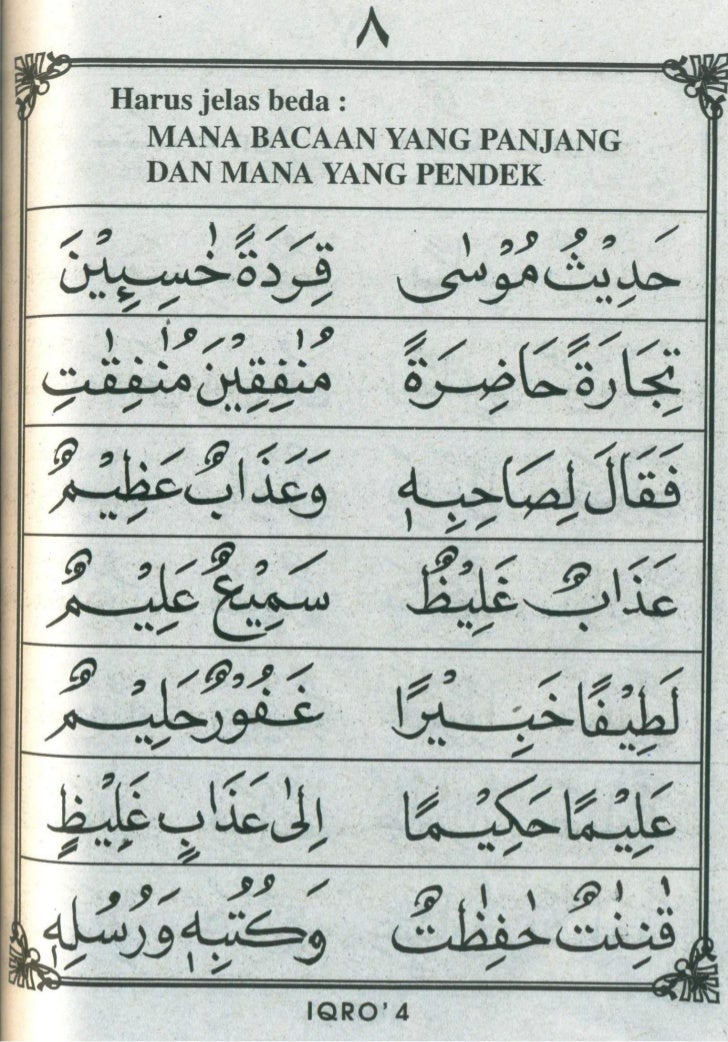 ٨
Harus jelas beda :
MANA BACAAN YANG PANJANG
DAN MANA YANG PENDEK
حَدِيْثُ مُوْسٰى قِرَدَةً خٰسِـِٕيْنَ
تِجَارَةً حَاضِرَةً مُنٰفِقِيْنَ مُنٰفِقٰتِ
فَقَالَ لِصَاحِبِهٖ وَعَذَابٌ عَظِيْمٌ
عَذَابٌ غَلِيْظٌ سَمِيْعٌ عَلِيْمٌ
لَطِيْفًا خَبِيْرًا غَفُوْرٌ حَلِيْمٌ
عَلِيْمًا حَكِيْمًا اِلٰى عَذَابٍ غَلِيْظٍ
قٰنِتٰتٌ حٰفِظٰتٌ وَكُتُبِهٖ وَرُسُلِهٖ
IQRO' 4